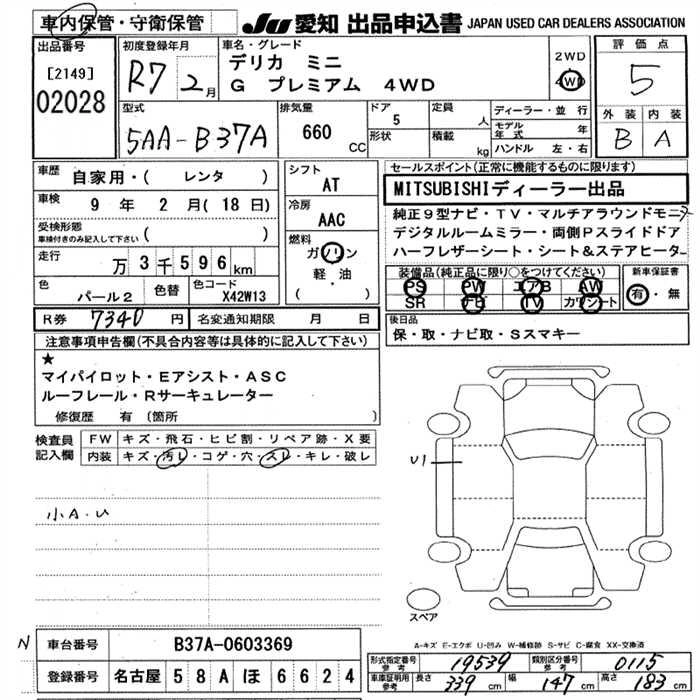 車内保管・守衛保管 JU 愛知 出品申込書 JAPAN USED CAR DEALERS ASSOCIATION
出品番号 初度登録年月 車名・グレード 2WD 評価点
[2149] R7 2月 デリカ ミニ 4WD 5
02028 G プレミアム 4WD
型式 排気量 ドア 定員 ディーラー・並行 外装 内装
5AA-B37A 660 CC 5 人 モデル年式 年 B A
形状 積載 kg ハンドル 左・右
車歴 自家用・( レンタ ) シフト AT セールスポイント(正常に機能するものに限ります)
MITSUBISHIディーラー出品
車検 9年 2月(18日) 冷房 AAC 純正9型ナビ・TV・マルチアラウンドモニタ
受検形態 デジタルルームミラー・両側Pスライドドア
車検付きのみ記入して下さい ( ) 燃料 ハーフレザーシート・シート&ステアヒーター
走行 万3千596km ガソリン 装備品(純正品に限り○をつけてください) 新車保証書
軽・油 PS PW エアB AW 有・無
色 パール2 色替 色コード X42W13 ( ) SR ナビ TV カワシート
R券 7340円 名変通知期限 月 日 後日品
注意事項申告欄(不具合内容等は具体的に記入して下さい) 保・取・ナビ取・Sスマキー
★
マイパイロット・Eアシスト・ASC
ルーフレール・Rサーキュレーター
修復歴 有 (箇所
検査員記入欄 FW キズ・飛石・ヒビ割・リペア跡・X要
内装 キズ・汚レ・コゲ・穴・スレ・キレ・破レ
U1
小A・U
スペア
A-キズ E-エクボ U-凹み W-補修跡 S-サビ C-腐食 XX-交換済
N 車台番号 B37A-0603369
形式指定番号 参考 19539 類別区分番号 参考 0115
登録番号 名古屋 58Aほ6624
車庫証明用 参考 長さ 339cm 幅 147cm 高さ 183cm